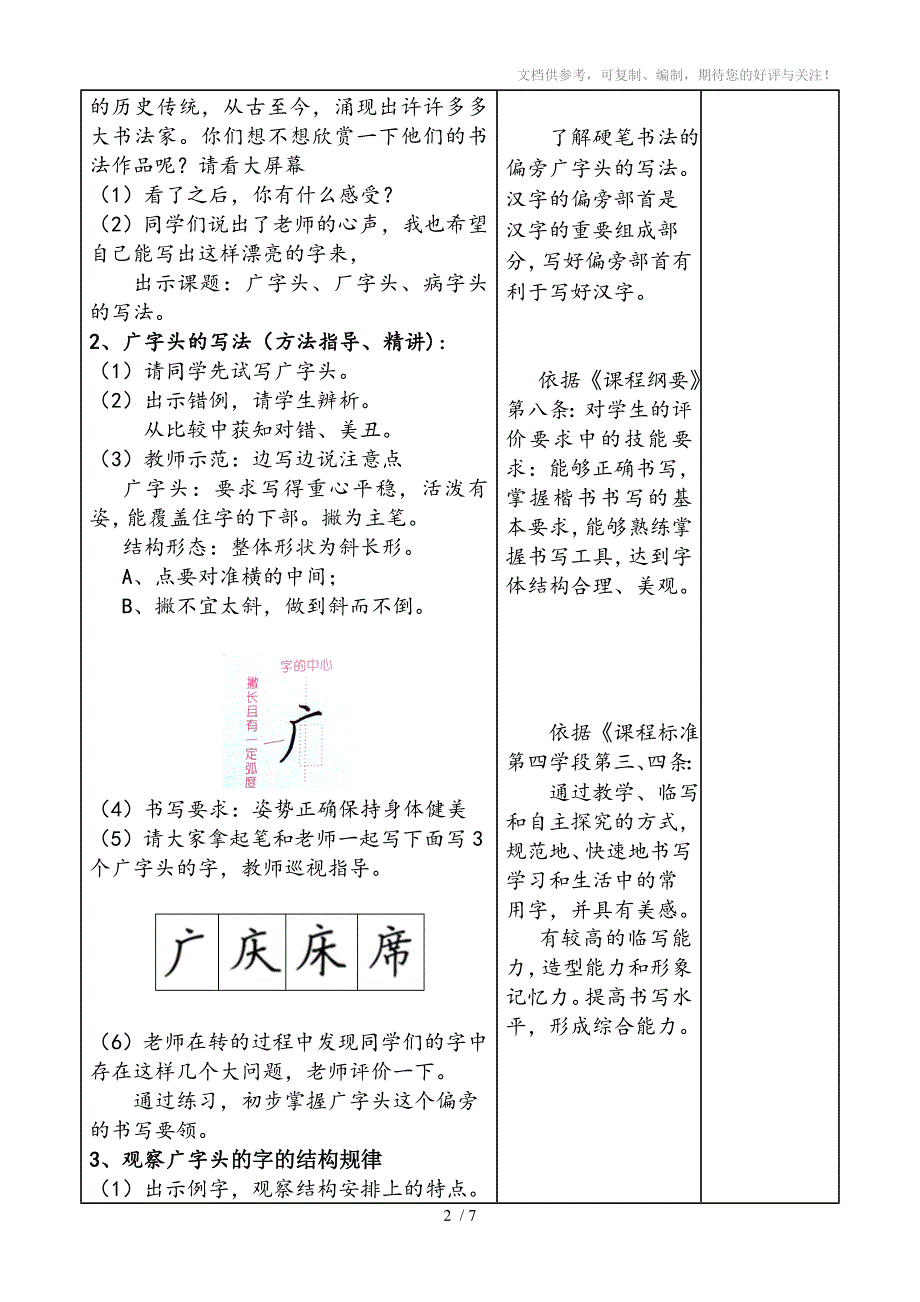 文档供参考，可复制、编制，期待您的好评与关注！
的历史传统，从古至今，涌现出许许多多
大书法家。你们想不想欣赏一下他们的书
法作品呢？请看大屏幕
（1）看了之后，你有什么感受？
（2）同学们说出了老师的心声，我也希望
自己能写出这样漂亮的字来，
出示课题：广字头、厂字头、病字头
的写法。
2、广字头的写法（方法指导、精讲）：
（1）请同学先试写广字头。
（2）出示错例，请学生辨析。
从比较中获知对错、美丑。
（3）教师示范：边写边说注意点
广字头：要求写得重心平稳，活泼有
姿，能覆盖住字的下部。撇为主笔。
结构形态：整体形状为斜长形。
A、点要对准横的中间；
B、撇不宜太斜，做到斜而不倒。
字的中心
撇长且有一定弧度
广
（4）书写要求：姿势正确保持身体健美
（5）请大家拿起笔和老师一起写下面写3
个广字头的字，教师巡视指导。
广 庆 床 席
（6）老师在转的过程中发现同学们的字中
存在这样几个大问题，老师评价一下。
通过练习，初步掌握广字头这个偏旁
的书写要领。
3、观察广字头的字的结构规律
（1）出示例字，观察结构安排上的特点。
了解硬笔书法的
偏旁广字头的写法。
汉字的偏旁部首是
汉字的重要组成部
分，写好偏旁部首有
利于写好汉字。
依据《课程纲要》
第八条：对学生的评
价要求中的技能要
求：能够正确书写，
掌握楷书书写的基
本要求，能够熟练掌
握书写工具，达到字
体结构合理、美观。
依据《课程标准
第四学段第三、四条：
通过教学、临写
和自主探究的方式，
规范地、快速地书写
学习和生活中的常
用字，并具有美感。
有较高的临写能
力，造型能力和形象
记忆力。提高书写水
平，形成综合能力。
2 / 7